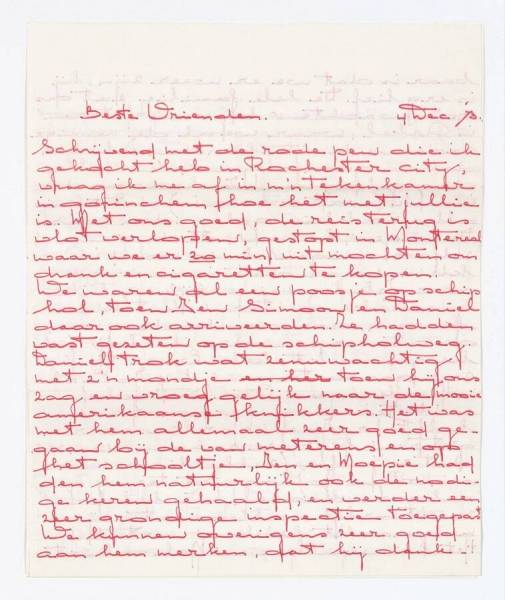 Beste Vrienden. 4 Dec '73.
Schrijvend met de rode pen die ik
gekocht heb in Rochester city,
vraag ik me af in m'n tekenkamer
in gorinchem, hoe het met jullie
is. Met ons goed, de reis terug is
vlot verlopen, gestopt in Montreal
waar we er 20 min uit mochten om
drank en cigaretten te kopen.
We waren al een poosje op schip
hol, toen Simoon en Daniel
daar ook arriveerden. Ze hadden
vast gezeten op de schipholweg.
Daniel trok wat zenuwachtig
met z'n mondje toen hij ons
zag en vroeg gelijk naar de mooie
amerikaanse knikkers. Het was
met hem allemaal zeer goed ge-
gaan bij de van meterens en op
het schooltje, en Moepie had
den hem natuurlijk ook de nodi-
ge keren gehaald, en verder een
zeer grondige inspectie toegepast
We kunnen overigens zeer goed
aan hem merken, dat hij dank-